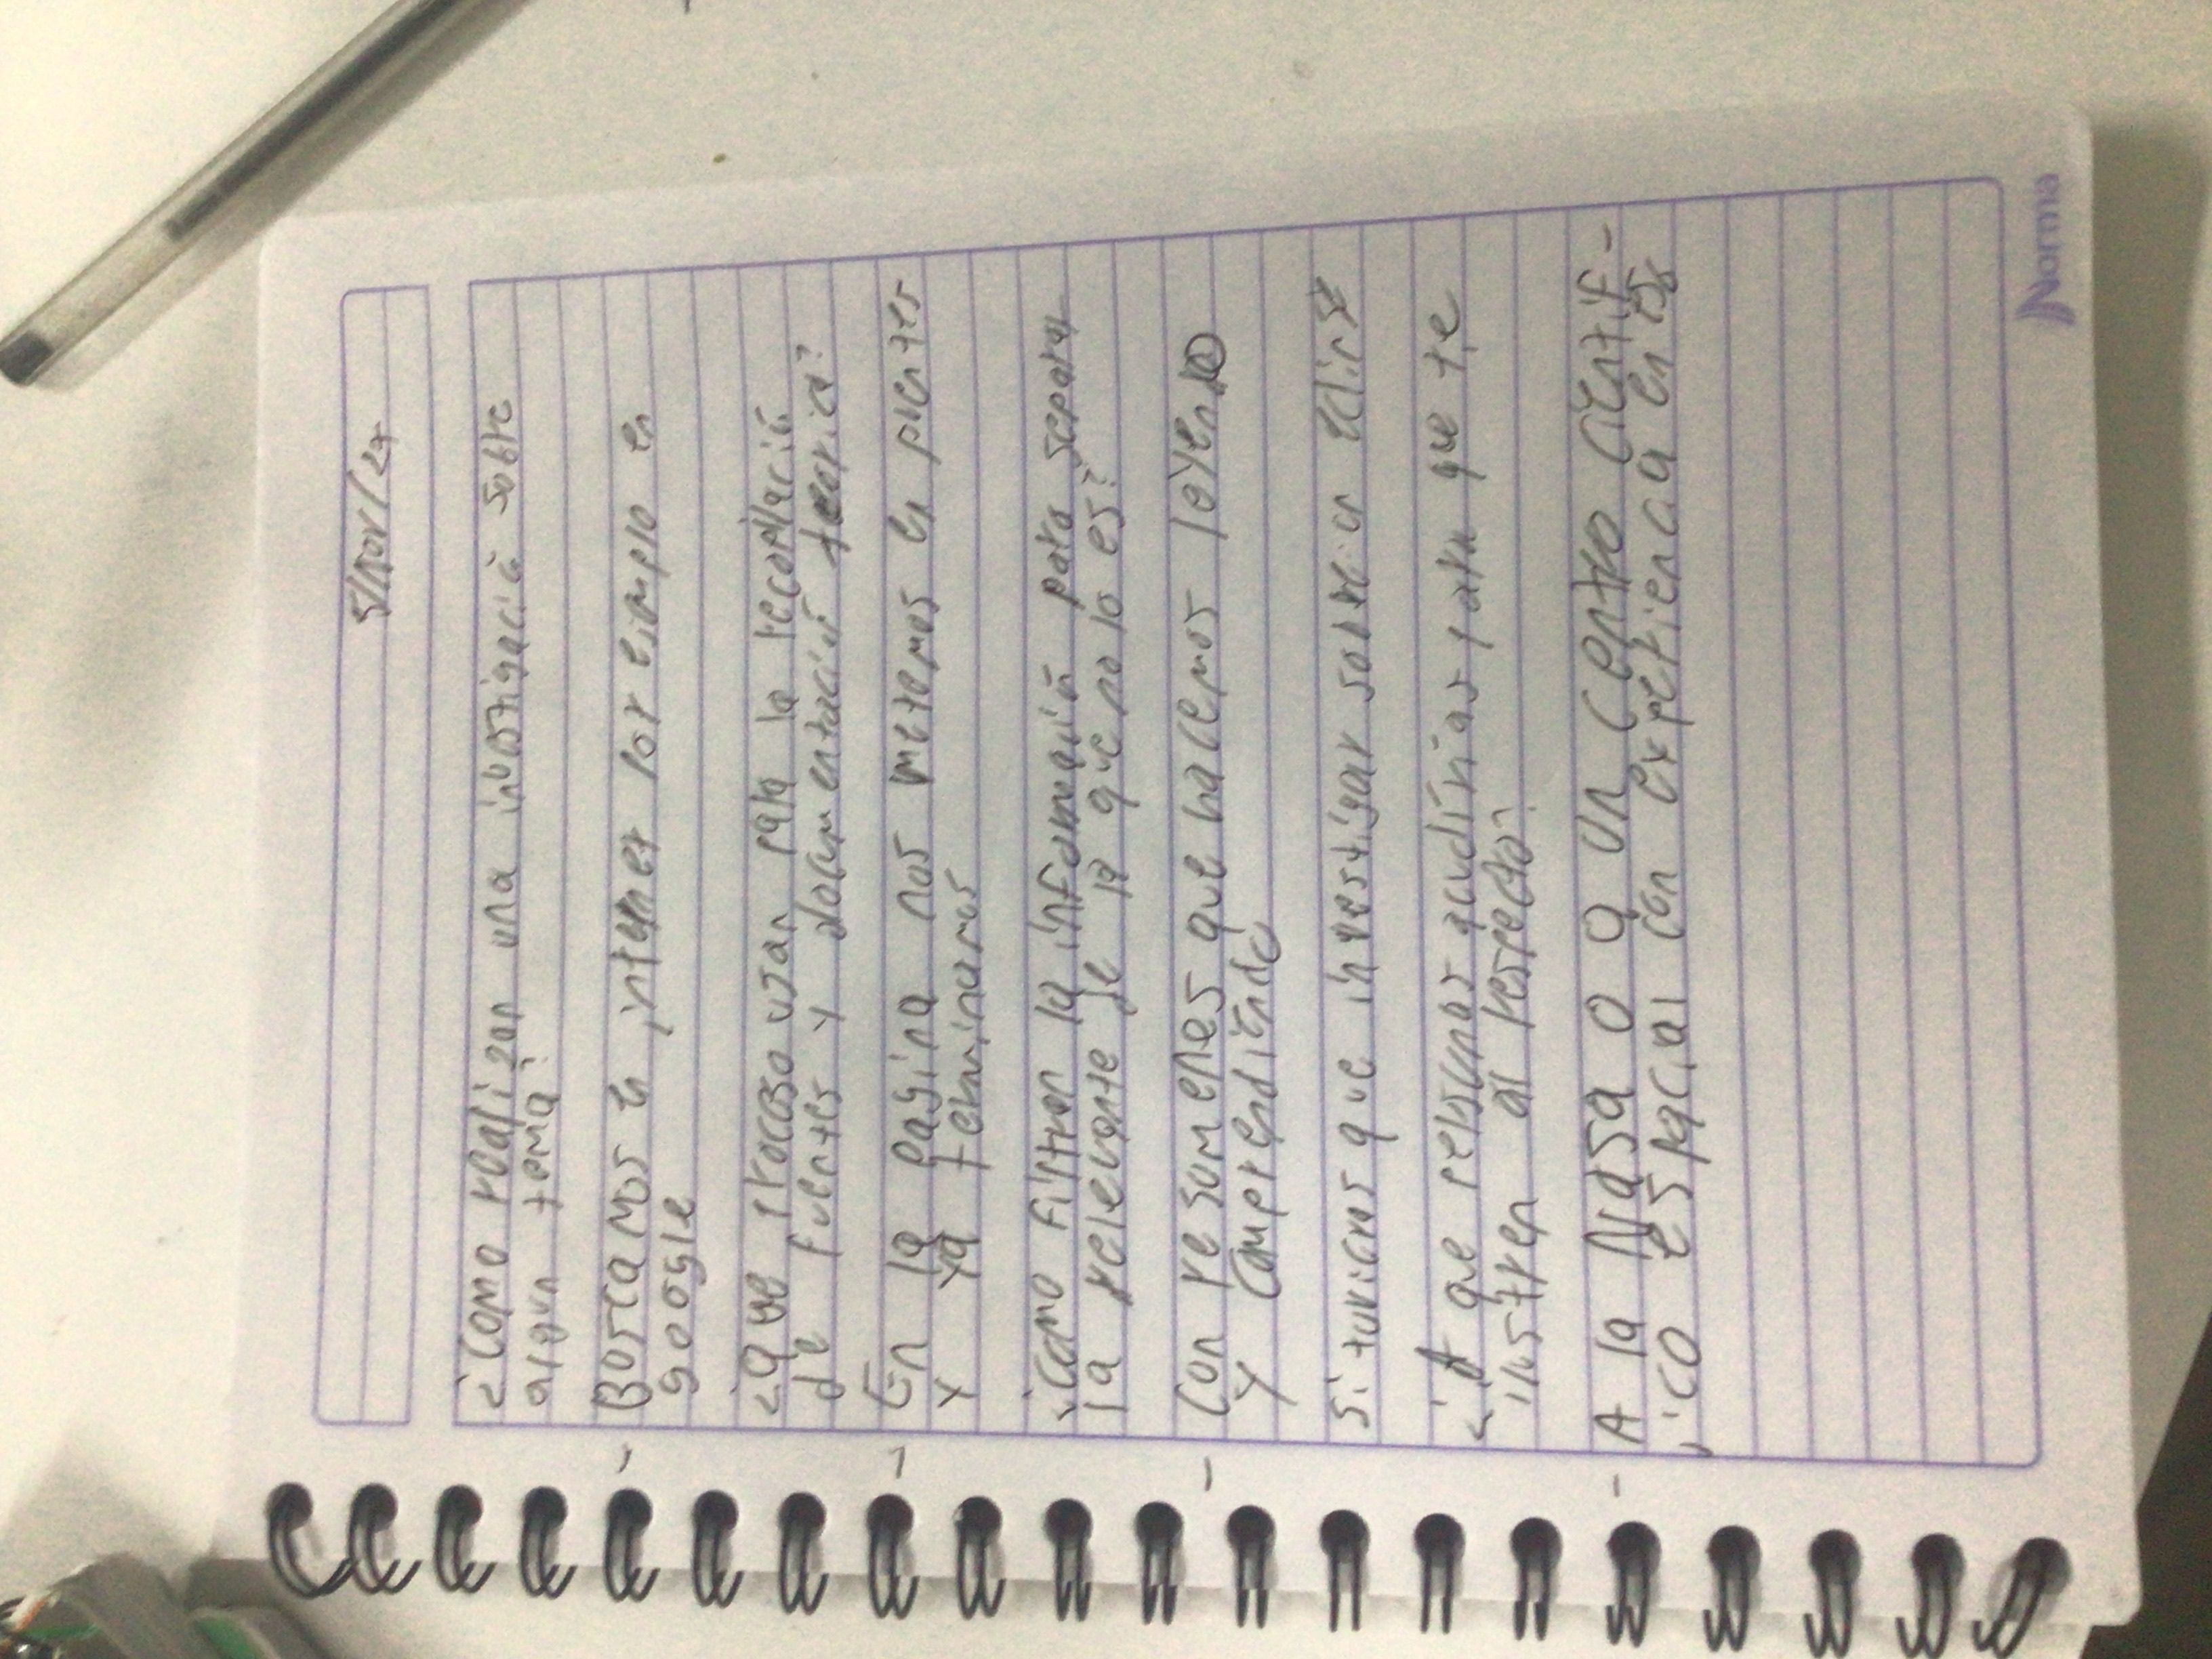 5/nov/24
¿Como realizan una inbostigació sobre
algun tema?
Buscamos en internet por ejemplo en
google
¿Que proceso usan para la recopilación
de fuentes y documentación teorica?
En la pagina nos metemos en puentes
y ya terminamos
¿Como filtran la información para separar
la relevante de la que no lo es?
Con resumenes que hacemos
y comprendiendo
Si tuvieras que investigar sobre un eclipse
¿A que personas acudirías para que te
instruyen al respecto?
A la Nasa o a un Centro Cientif-
ico espacial con experiencia en es
Norma